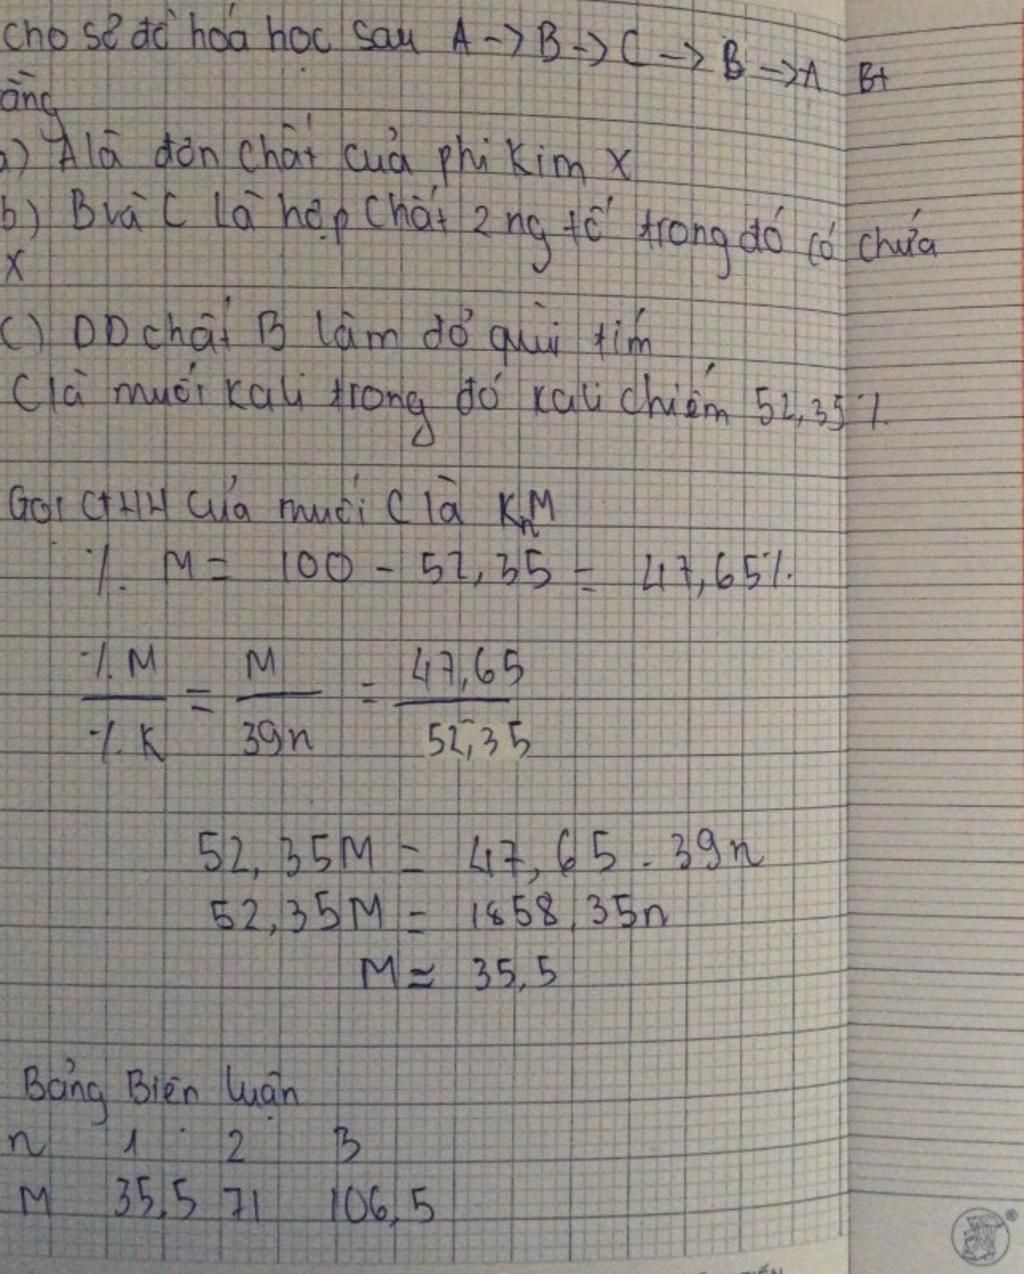 cho sơ đồ hoá học sau A -> B -> C -> B -> A Bt
ằng
a) A là đơn chất của phi kim X
b) B và C là hợp chất 2 ng tố trong đó có chứa
X
c) DD chất B làm đỏ quì tím
C là muối kali trong đó kali chiếm 52,35%
Gọi CTHH của muối C là KnM
% M = 100 - 52,35 = 47,65%
%M / %K = M / 39n = 47,65 / 52,35
52,35M = 47,65 . 39n
52,35M = 1858,35n
M ≈ 35,5
Bảng Biện luận
n 1 2 3
M 35,5 71 106,5